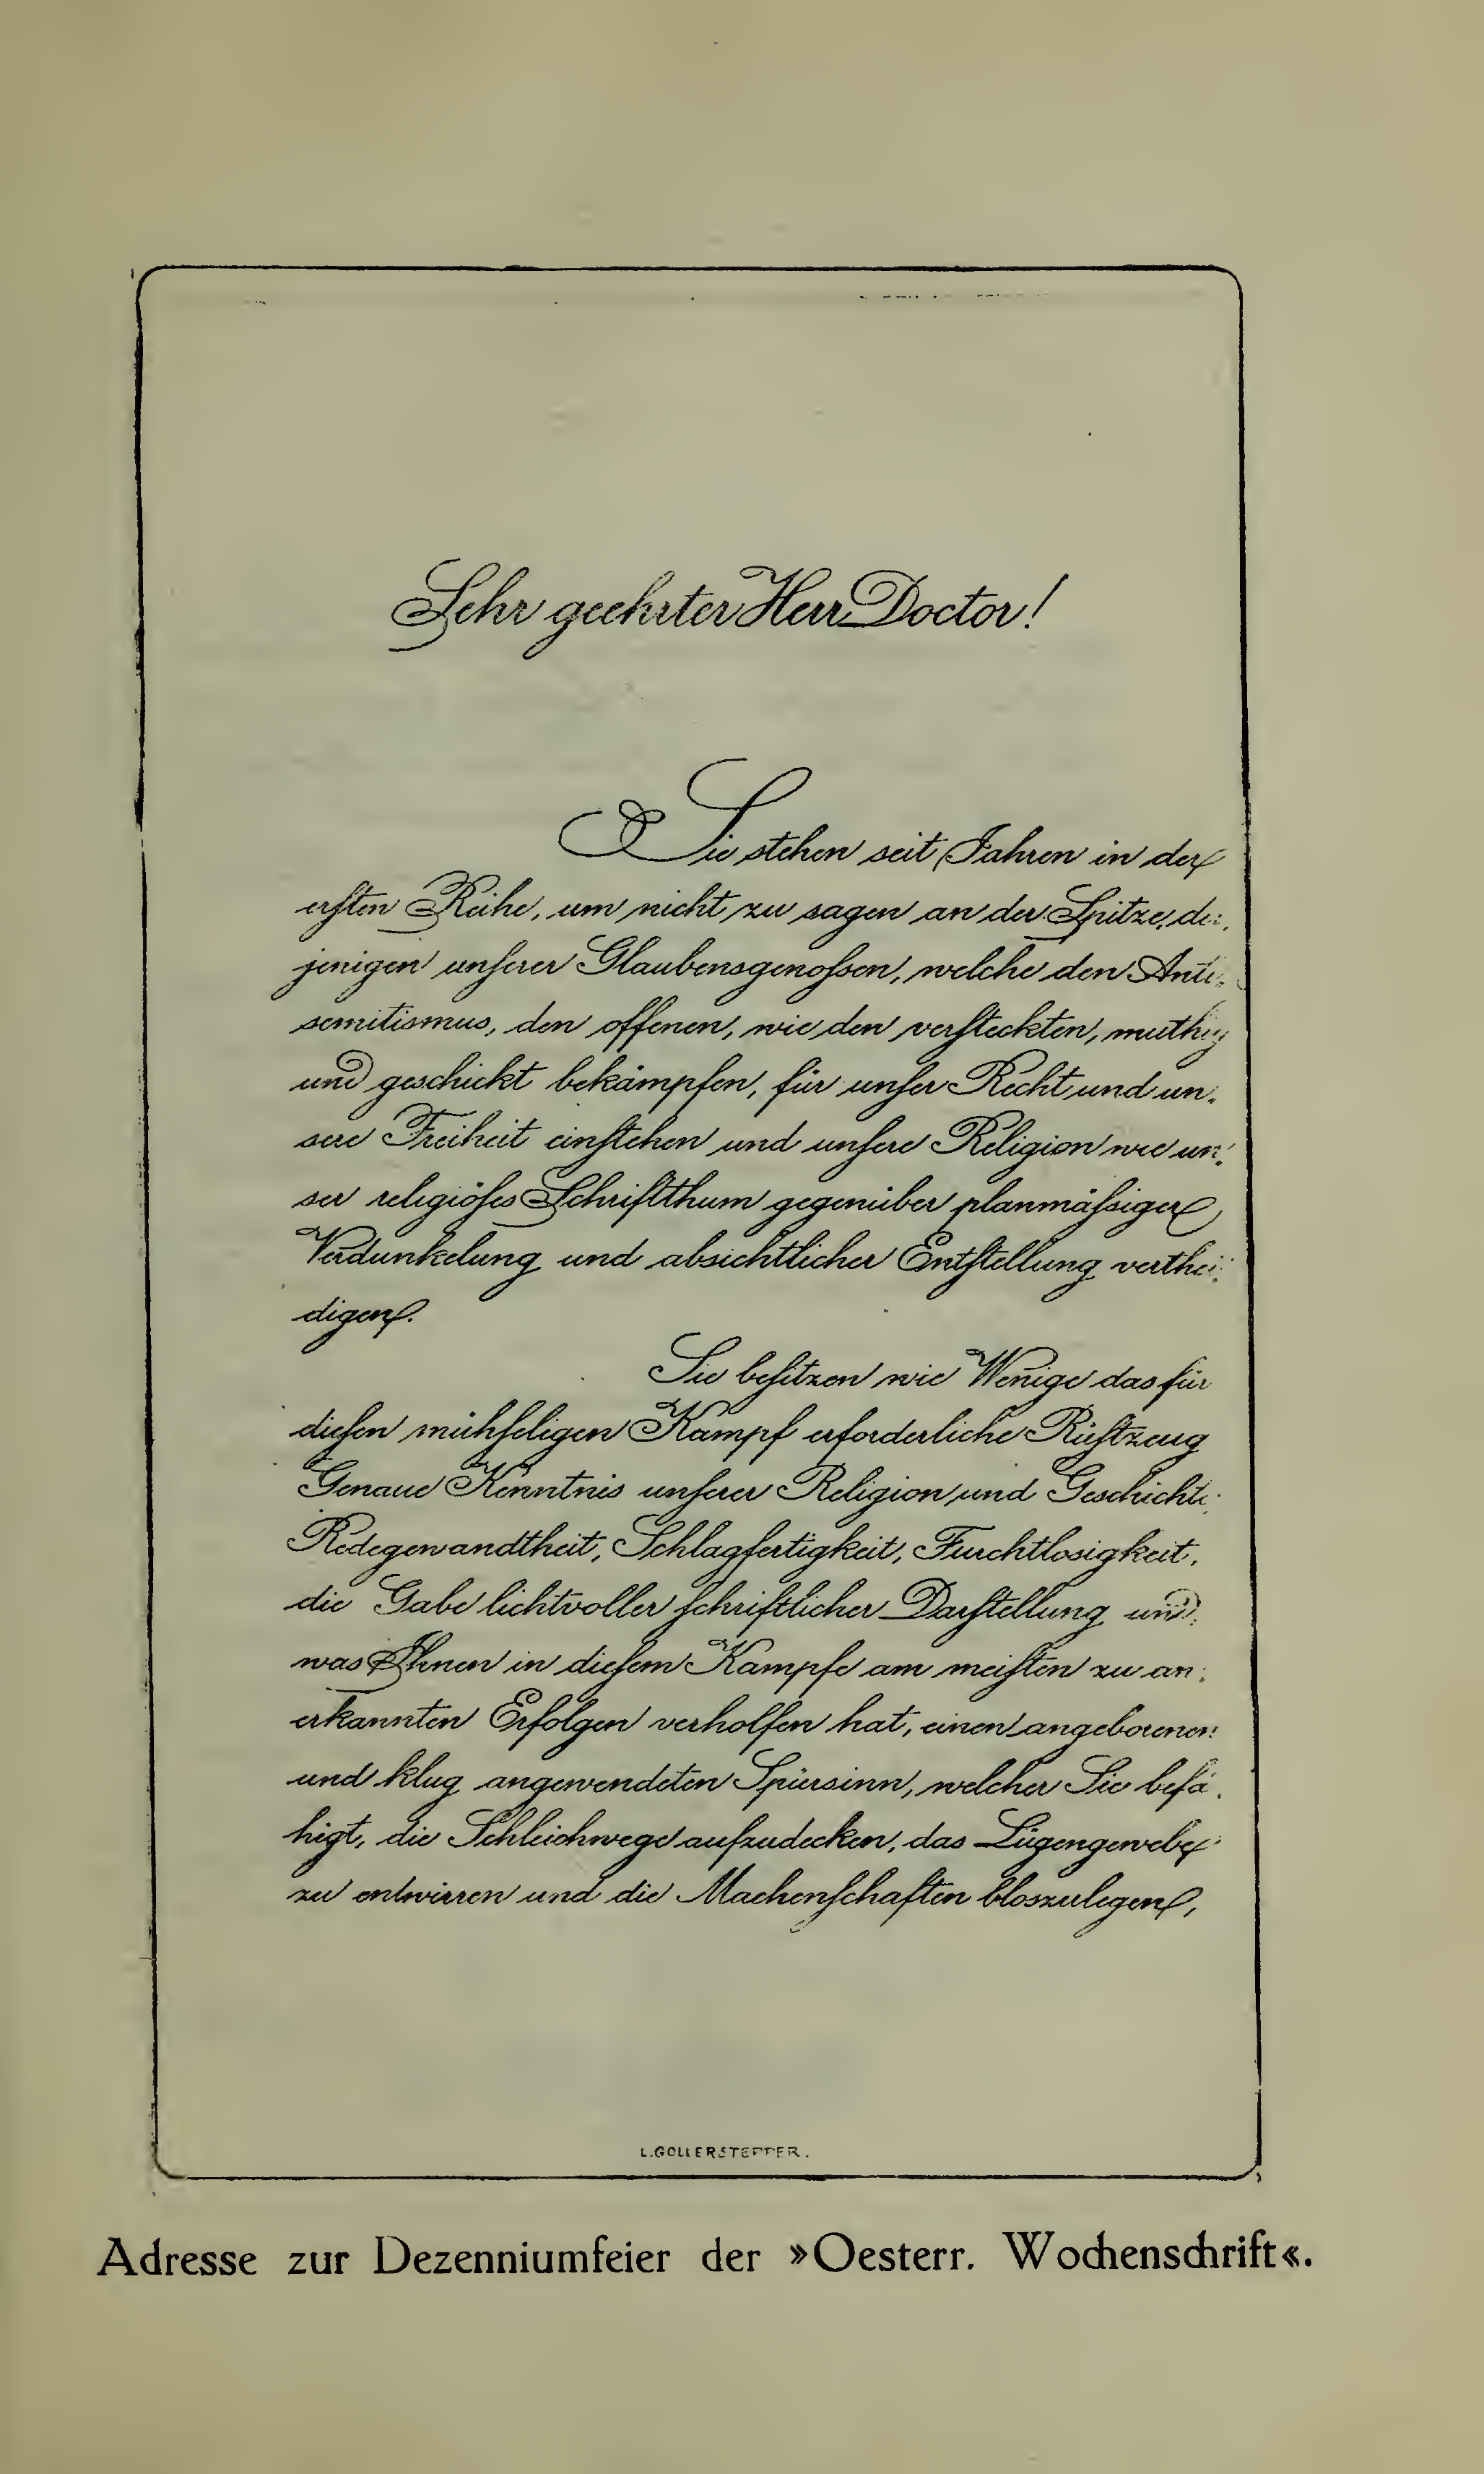 Sehr geehrter Herr Doctor!
Sie stehen seit Jahren in der
ersten Reihe, um nicht zu sagen an der Spitze der-
jenigen unserer Glaubensgenossen, welche den Anti-
semitismus, den offenen, wie den versteckten, muthig
und geschickt bekämpfen, für unser Recht und un-
sere Freiheit einstehen und unsere Religion wie un-
ser religiöses Schriftthum gegenüber planmässiger
Verdunkelung und absichtlicher Entstellung verthei-
digen.
Sie besitzen wie Wenige das für
diesen mühseligen Kampf erforderliche Rüstzeug
Genaue Kenntnis unserer Religion und Geschichte
Redegewandtheit, Schlagfertigkeit, Furchtlosigkeit,
die Gabe lichtvoller schriftlicher Darstellung und
was Ihnen in diesem Kampfe am meisten zu an-
erkannten Erfolgen verholfen hat, einen angeborenen
und klug angewendeten Spürsinn, welcher Sie befä-
higt, die Schleichwege aufzudecken, das Lügengewebe
zu entwirren und die Machenschaften bloszulegen,
L. GOLLERSTEPPER.
Adresse zur Dezenniumfeier der »Oesterr. Wochenschrift«.